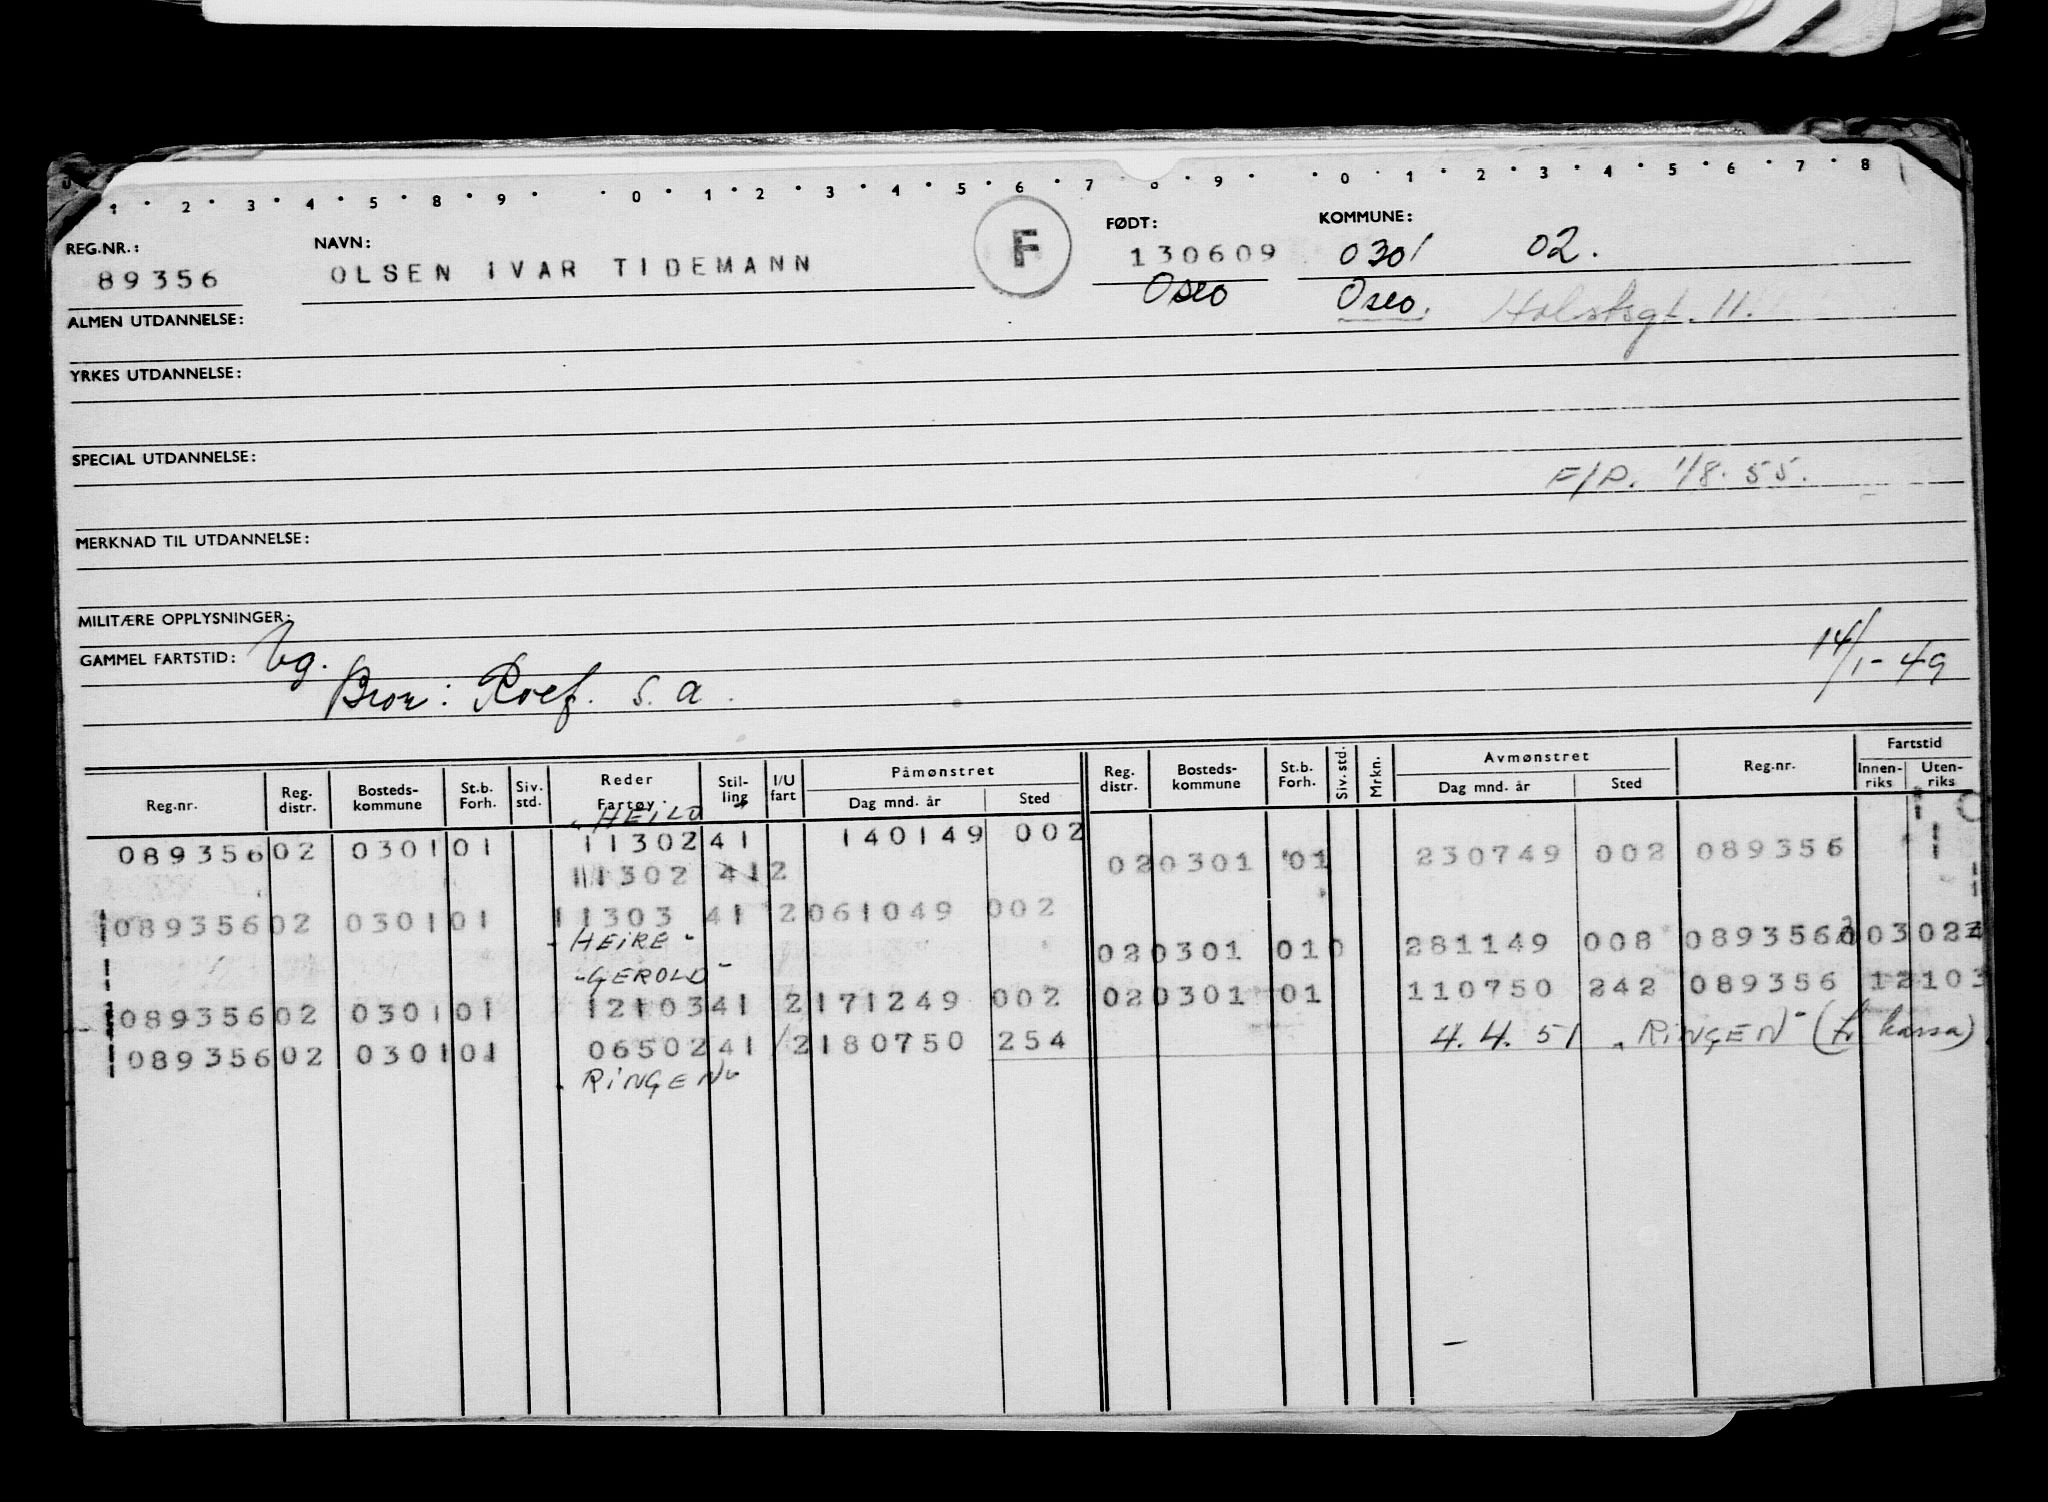 1 · 2 · 3 · 4 · 5 · 8 · 9 · · 0 · 1 · 2 · 3 · 4 · 5 · 6 · 7 · 9 · · 0 · 1 · 2 · 3 · 4 · 5 · 6 · 7 · 8
REG.NR.: NAVN: F FØDT: KOMMUNE:
89356 OLSEN IVAR TIDEMANN 130609 0301 02.
Oslo Oslo. Holstsgt. 11.
ALMEN UTDANNELSE:
YRKES UTDANNELSE:
SPECIAL UTDANNELSE:
F/P. 1/8.55.
MERKNAD TIL UTDANNELSE:
MILITÆRE OPPLYSNINGER:
GAMMEL FARTSTID: 14/1-49
Bror: Rolf. s.a.
Reg.nr. Reg. distr. Bosteds-kommune St.b. Forh. Siv. std. Reder Fartøy Stil-ling I/U fart Påmønstret Dag mnd. år Sted Reg. distr. Bosteds-kommune St.b. Forh. Siv. std. Mrkn. Avmønstret Dag mnd. år Sted Reg.nr. Fartstid Innen-riks Uten-riks
"HEILO"
089356 02 0301 01 11302 41 140149 002
11302 412 02 0301 01 230749 002 089356
089356 02 0301 01 11303 41 2 061049 002
"HEIRE" 02 0301 010 281149 008 089356
"GEROLD"
089356 02 0301 01 12103 41 2 171249 002 02 0301 01 110750 242 089356 12103
089356 02 0301 01 06502 41 2 180750 254 4.4.51 "RINGEN" (tr. kassa)
"RINGEN"